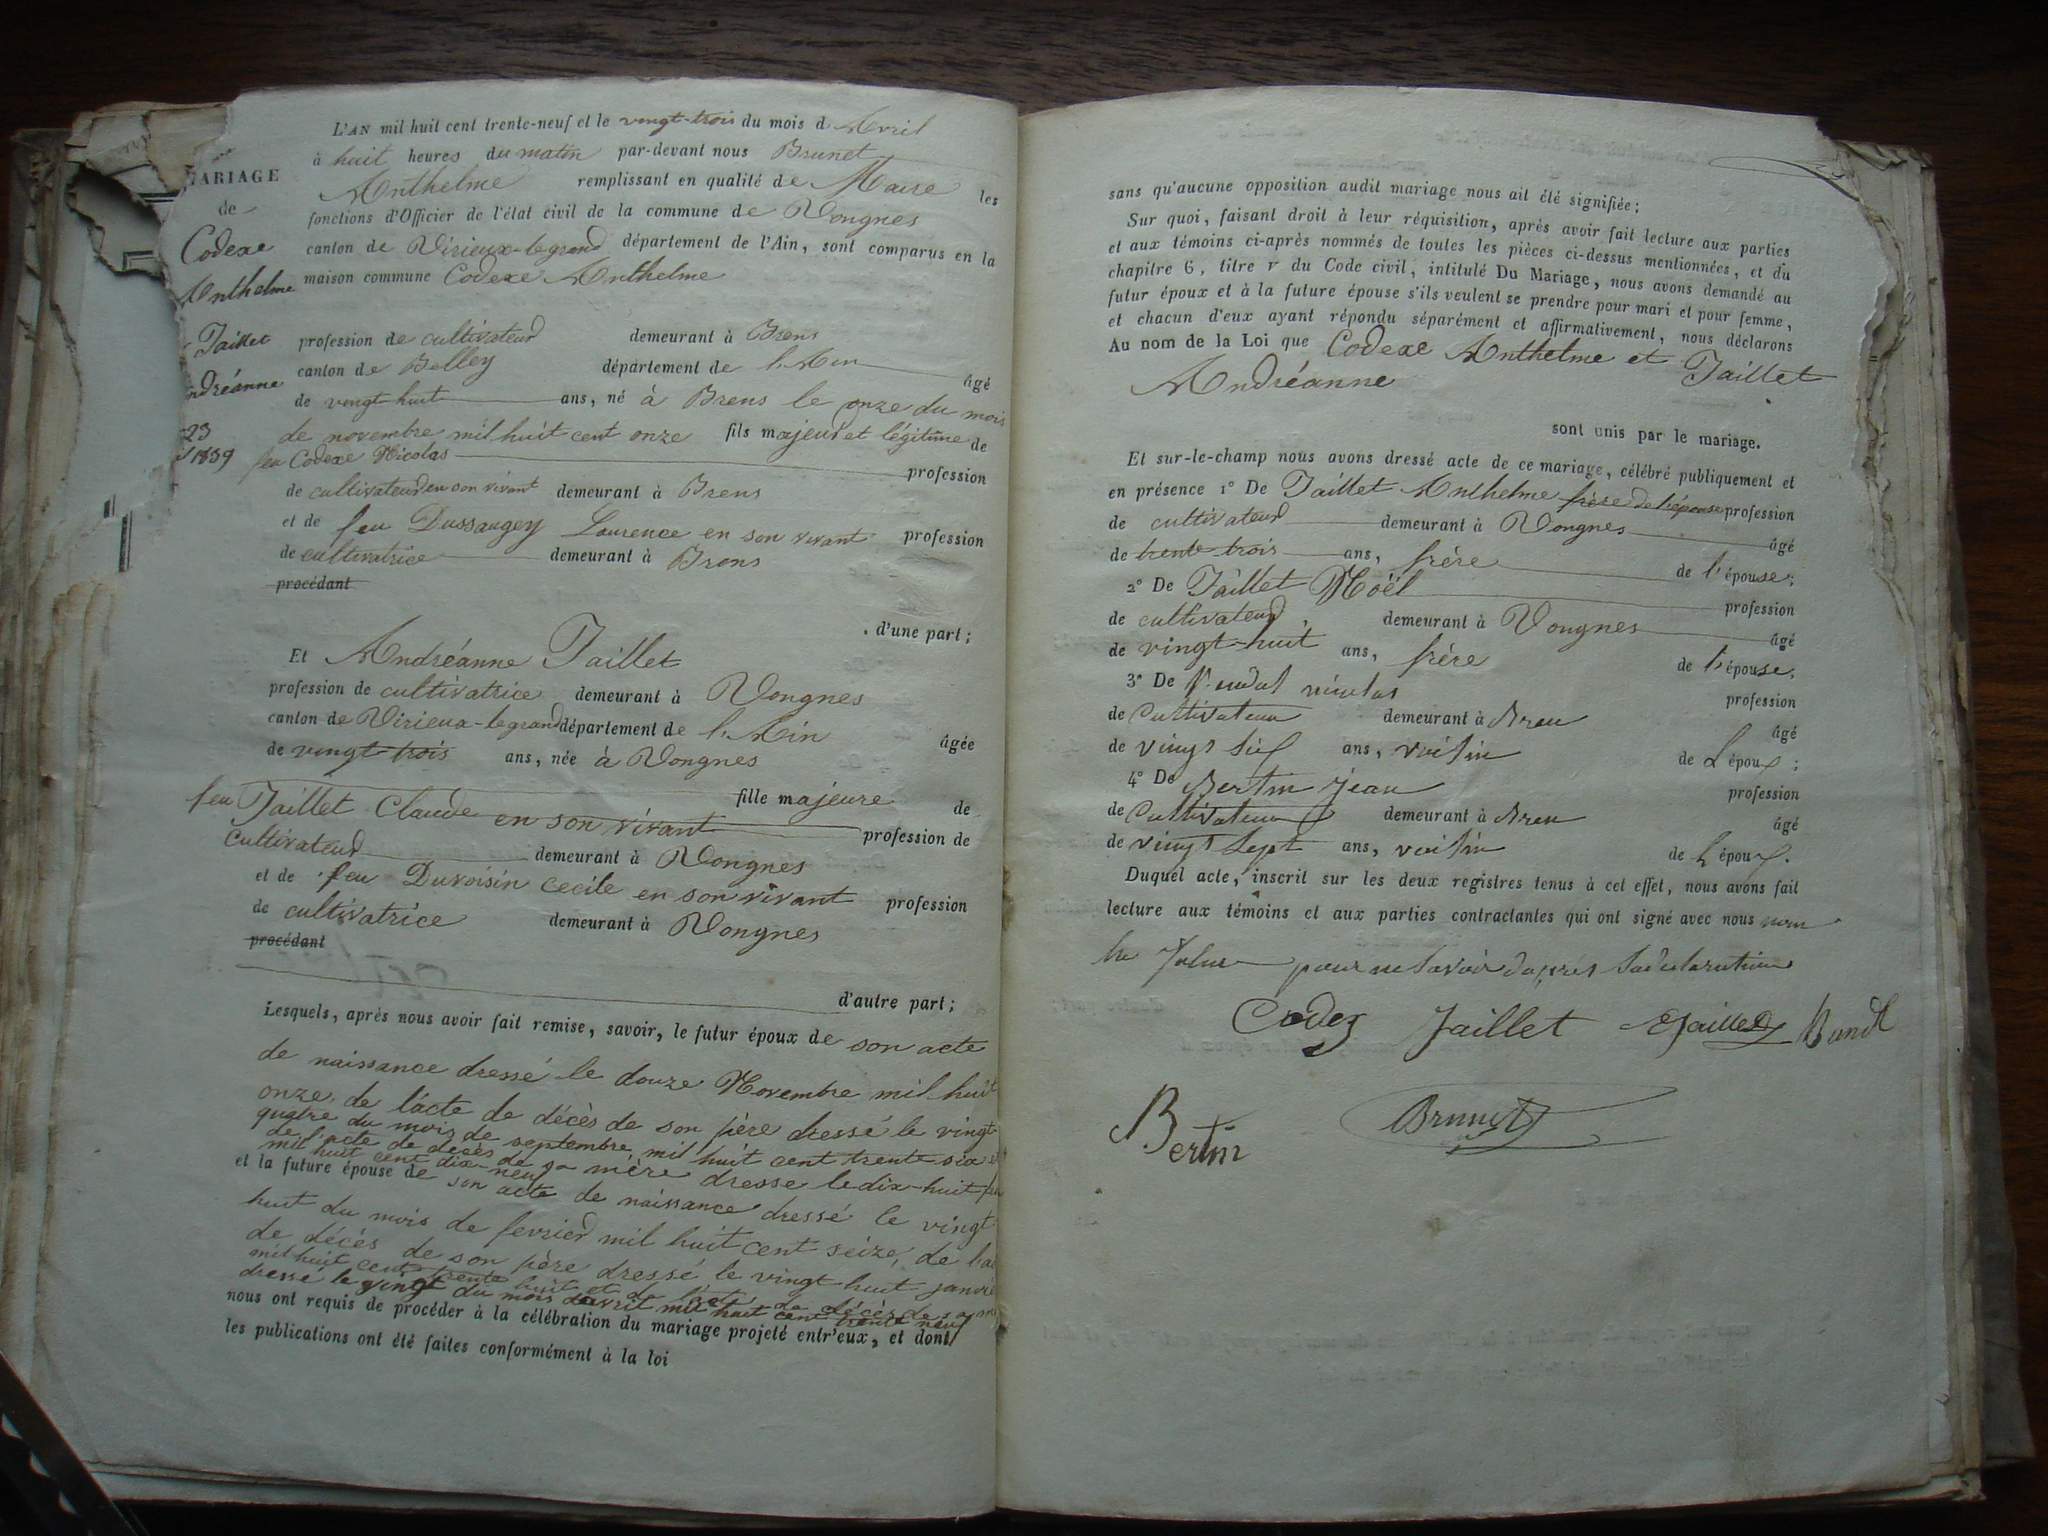 L'AN mil huit cent trente-neuf et le vingt-trois du mois d Avril
à huit heures du matin par-devant nous Brunet
Anthelme remplissant en qualité de Maire les
fonctions d'Officier de l'état civil de la commune de Vongnes
canton de Virieux-le-grand département de l'Ain, sont comparus en la
maison commune Codexe Anthelme
ARIAGE
de
Codexe
Anthelme
Taillet
ndréanne
23
1839
profession de cultivateur demeurant à Brens
canton de Belley département de l'Ain âgé
de vingt-huit ans, né à Brens le onze du mois
de novembre mil huit cent onze fils majeur et légitime de
feu Codexe Nicolas profession
de cultivateur en son vivant demeurant à Brens
et de feu Dussaugey Laurence en son vivant profession
de cultivatrice demeurant à Brens
procédant
d'une part;
Et Andréanne Taillet
profession de cultivatrice demeurant à Vongnes
canton de Virieux-legrand département de l'Ain âgée
de vingt-trois ans, née à Vongnes
fille majeure de
feu Taillet Claude en son vivant profession de
cultivateur demeurant à Vongnes
et de feu Duvoisin Cecile en son vivant profession
de cultivatrice demeurant à Vongnes
procédant
d'autre part;
Lesquels, après nous avoir fait remise, savoir, le futur époux de son acte
de naissance dressé le douze Novembre mil huit
onze, de l'acte de décès de son père dressé le vingt
quatre du mois de septembre mil huit cent trente six et
de l'acte de décès de sa mère dressé le dix-huit
mil huit cent dix-neuf
et la future épouse de son acte de naissance dressé le vingt
huit du mois de fevrier mil huit cent seize, de l'ac
de décès de son père dressé le vingt-huit janvie
mil huit cent trente huit et de l'acte de décès de sa m
dressé le vingt du mois davril mil huit cent trente neuf
nous ont requis de procéder à la célébration du mariage projeté entr'eux, et dont
les publications ont été faites conformément à la loi
sans qu'aucune opposition audit mariage nous ait été signifiée;
Sur quoi, faisant droit à leur réquisition, après avoir fait lecture aux parties
et aux témoins ci-après nommés de toutes les pièces ci-dessus mentionnées, et du
chapitre 6, titre V du Code civil, intitulé Du Mariage, nous avons demandé au
futur époux et à la future épouse s'ils veulent se prendre pour mari et pour femme,
et chacun d'eux ayant répondu séparément et affirmativement, nous déclarons
Au nom de la Loi que Codexe Anthelme et Taillet
Andréanne
sont unis par le mariage.
Et sur-le-champ nous avons dressé acte de ce mariage, célébré publiquement et
en présence 1° De Taillet Anthelme frère de l'épouse profession
de cultivateur demeurant à Vongnes âgé
de trente trois ans, frère de l'épouse;
2° De Taillet Noël profession
de cultivateur, demeurant à Vongnes âgé
de vingt-huit ans, frère de l'épouse,
3° De nicolas profession
de Cultivateur demeurant à Bren âgé
de vingt six ans, voisin de L époux;
4° De Bertin jean profession
de Cultivateur demeurant à Bren âgé
de vingt sept ans, voisin de L époux.
Duquel acte, inscrit sur les deux registres tenus à cet effet, nous avons fait
lecture aux témoins et aux parties contractantes qui ont signé avec nous non
la future pour ne savoir daprés sa declaration
Codex Taillet Taillet
Bertin Brunet